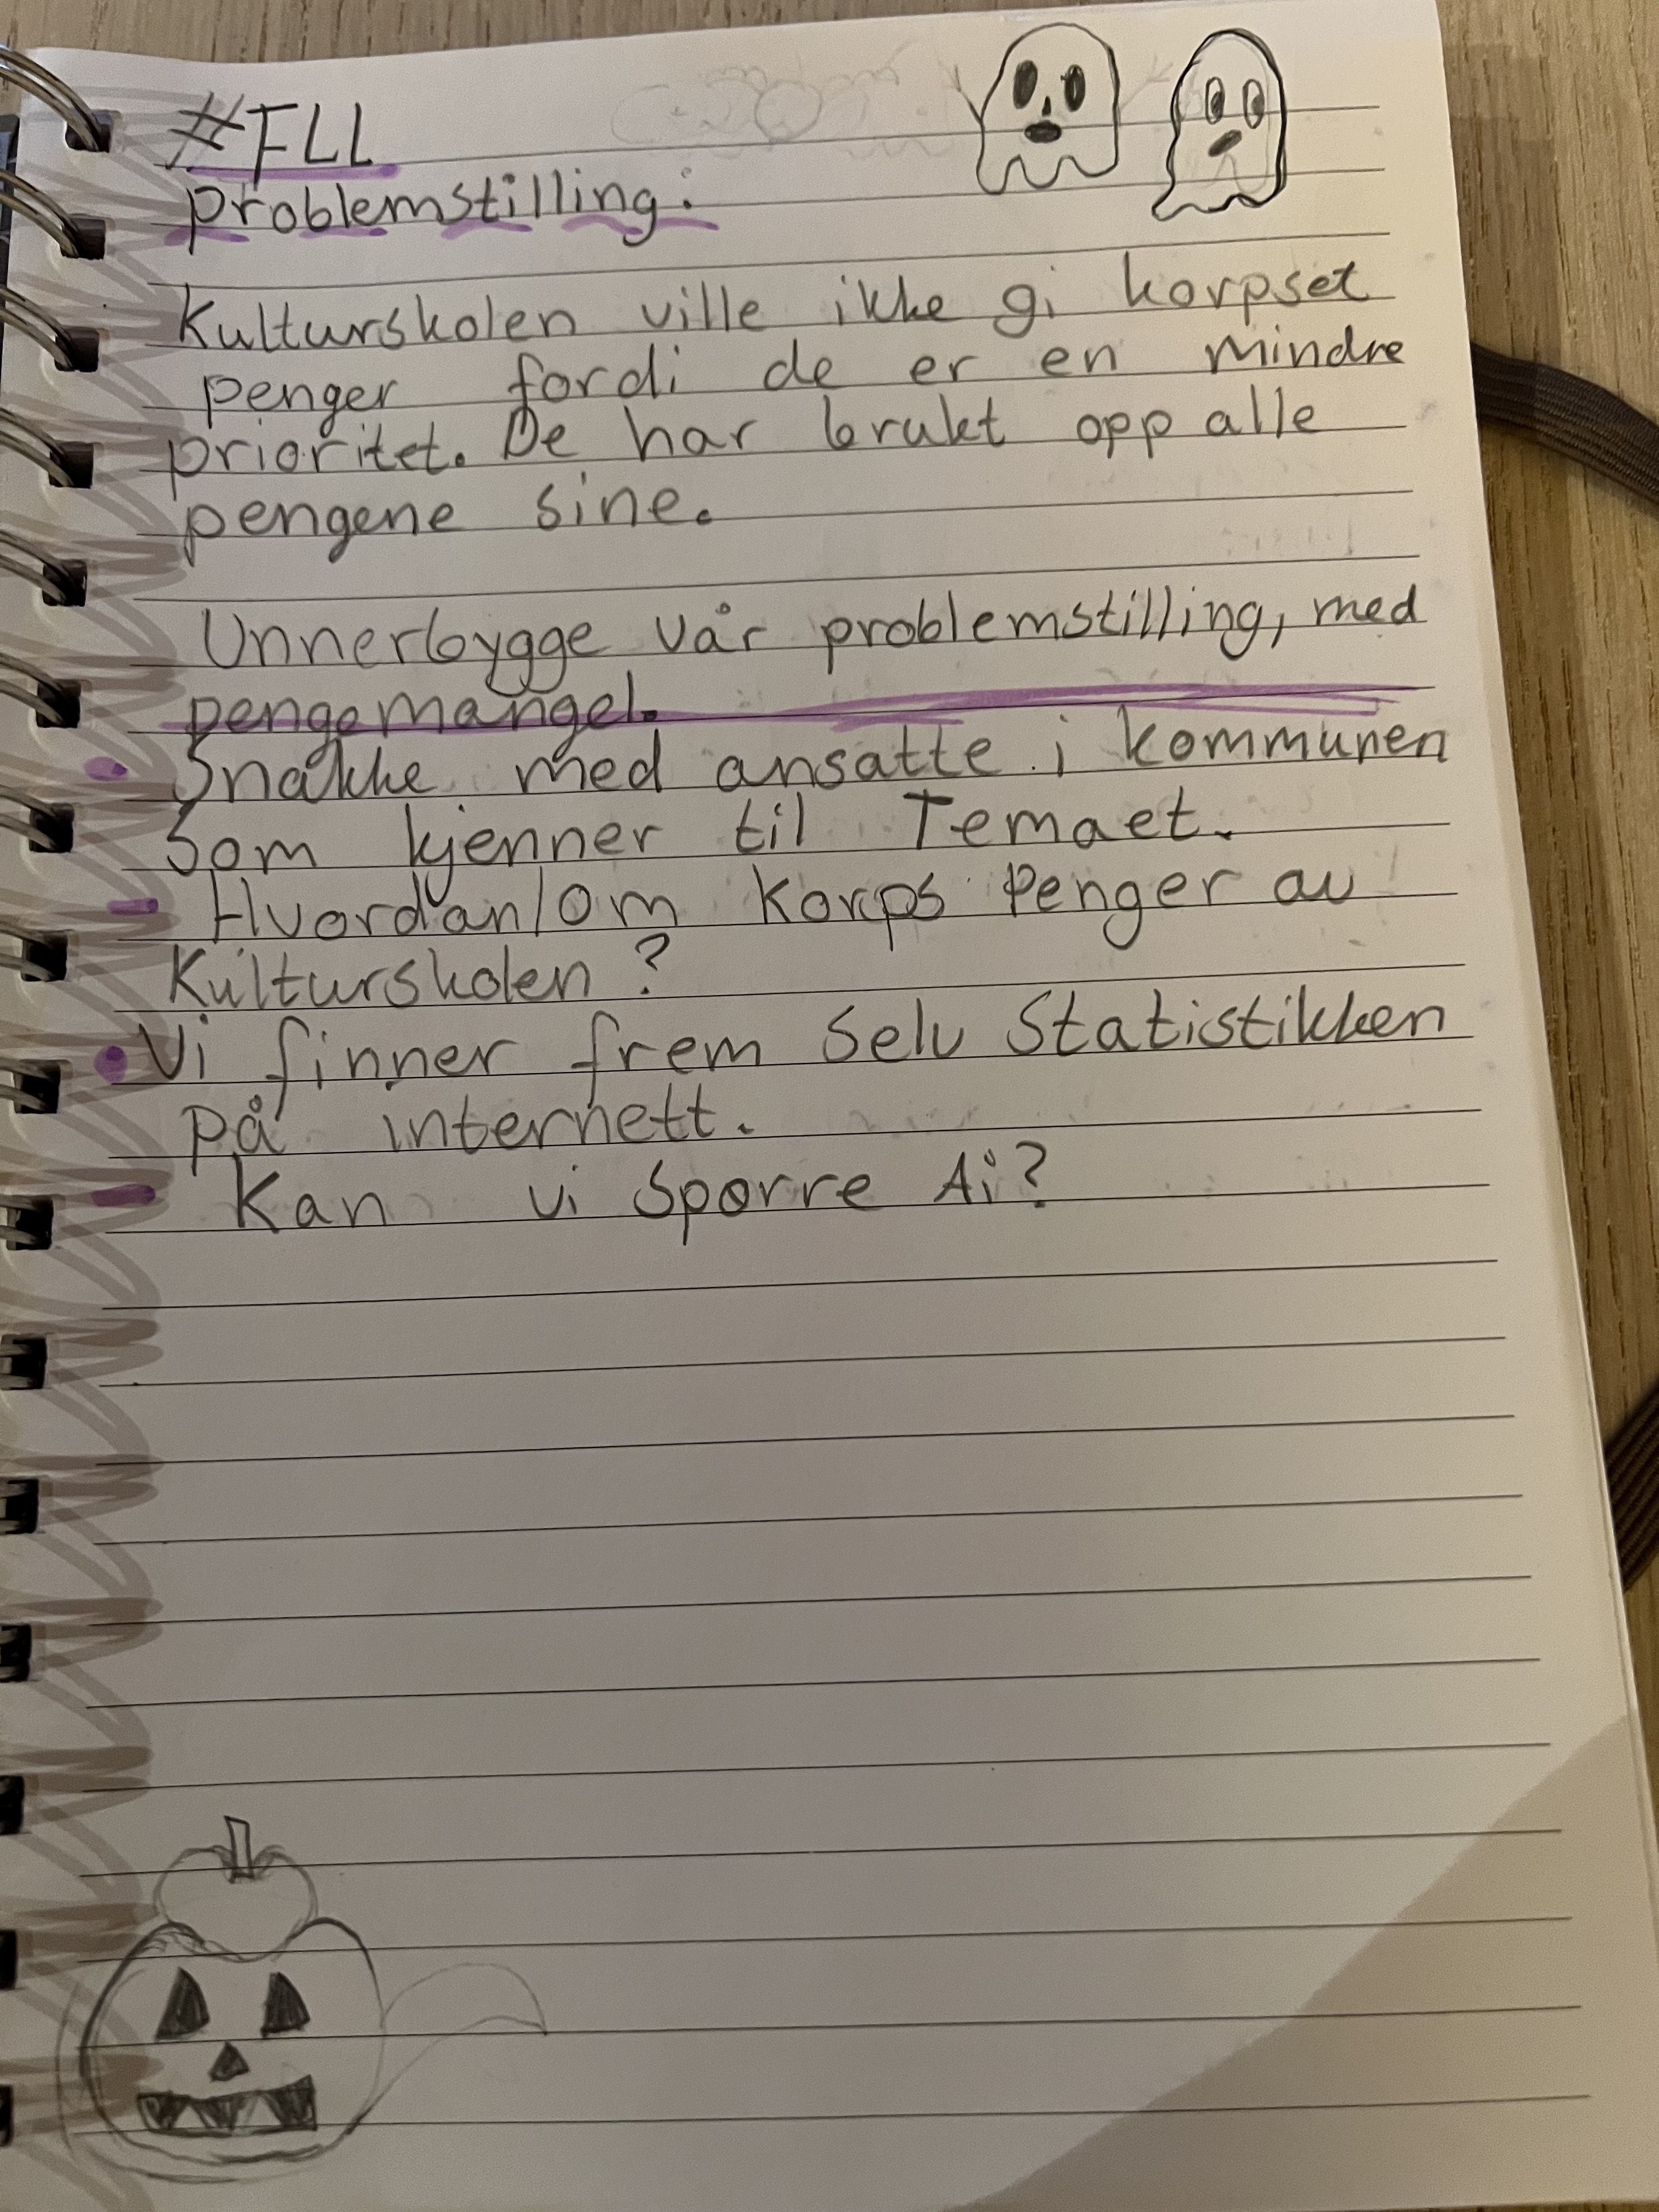 #FLL
problemstilling:
Kulturskolen ville ikke gi korpset
penger fordi de er en mindre
prioritet. De har brukt opp alle
pengene sine.
Unnerbygge vår problemstilling, med
pengemangel.
Snakke med ansatte i kommunen
Som kjenner til Temaet.
- Hvordan/om korps Penger av
Kulturskolen?
• Vi finner frem Selv Statistikken
på internett.
- Kan vi Spørre Ai?